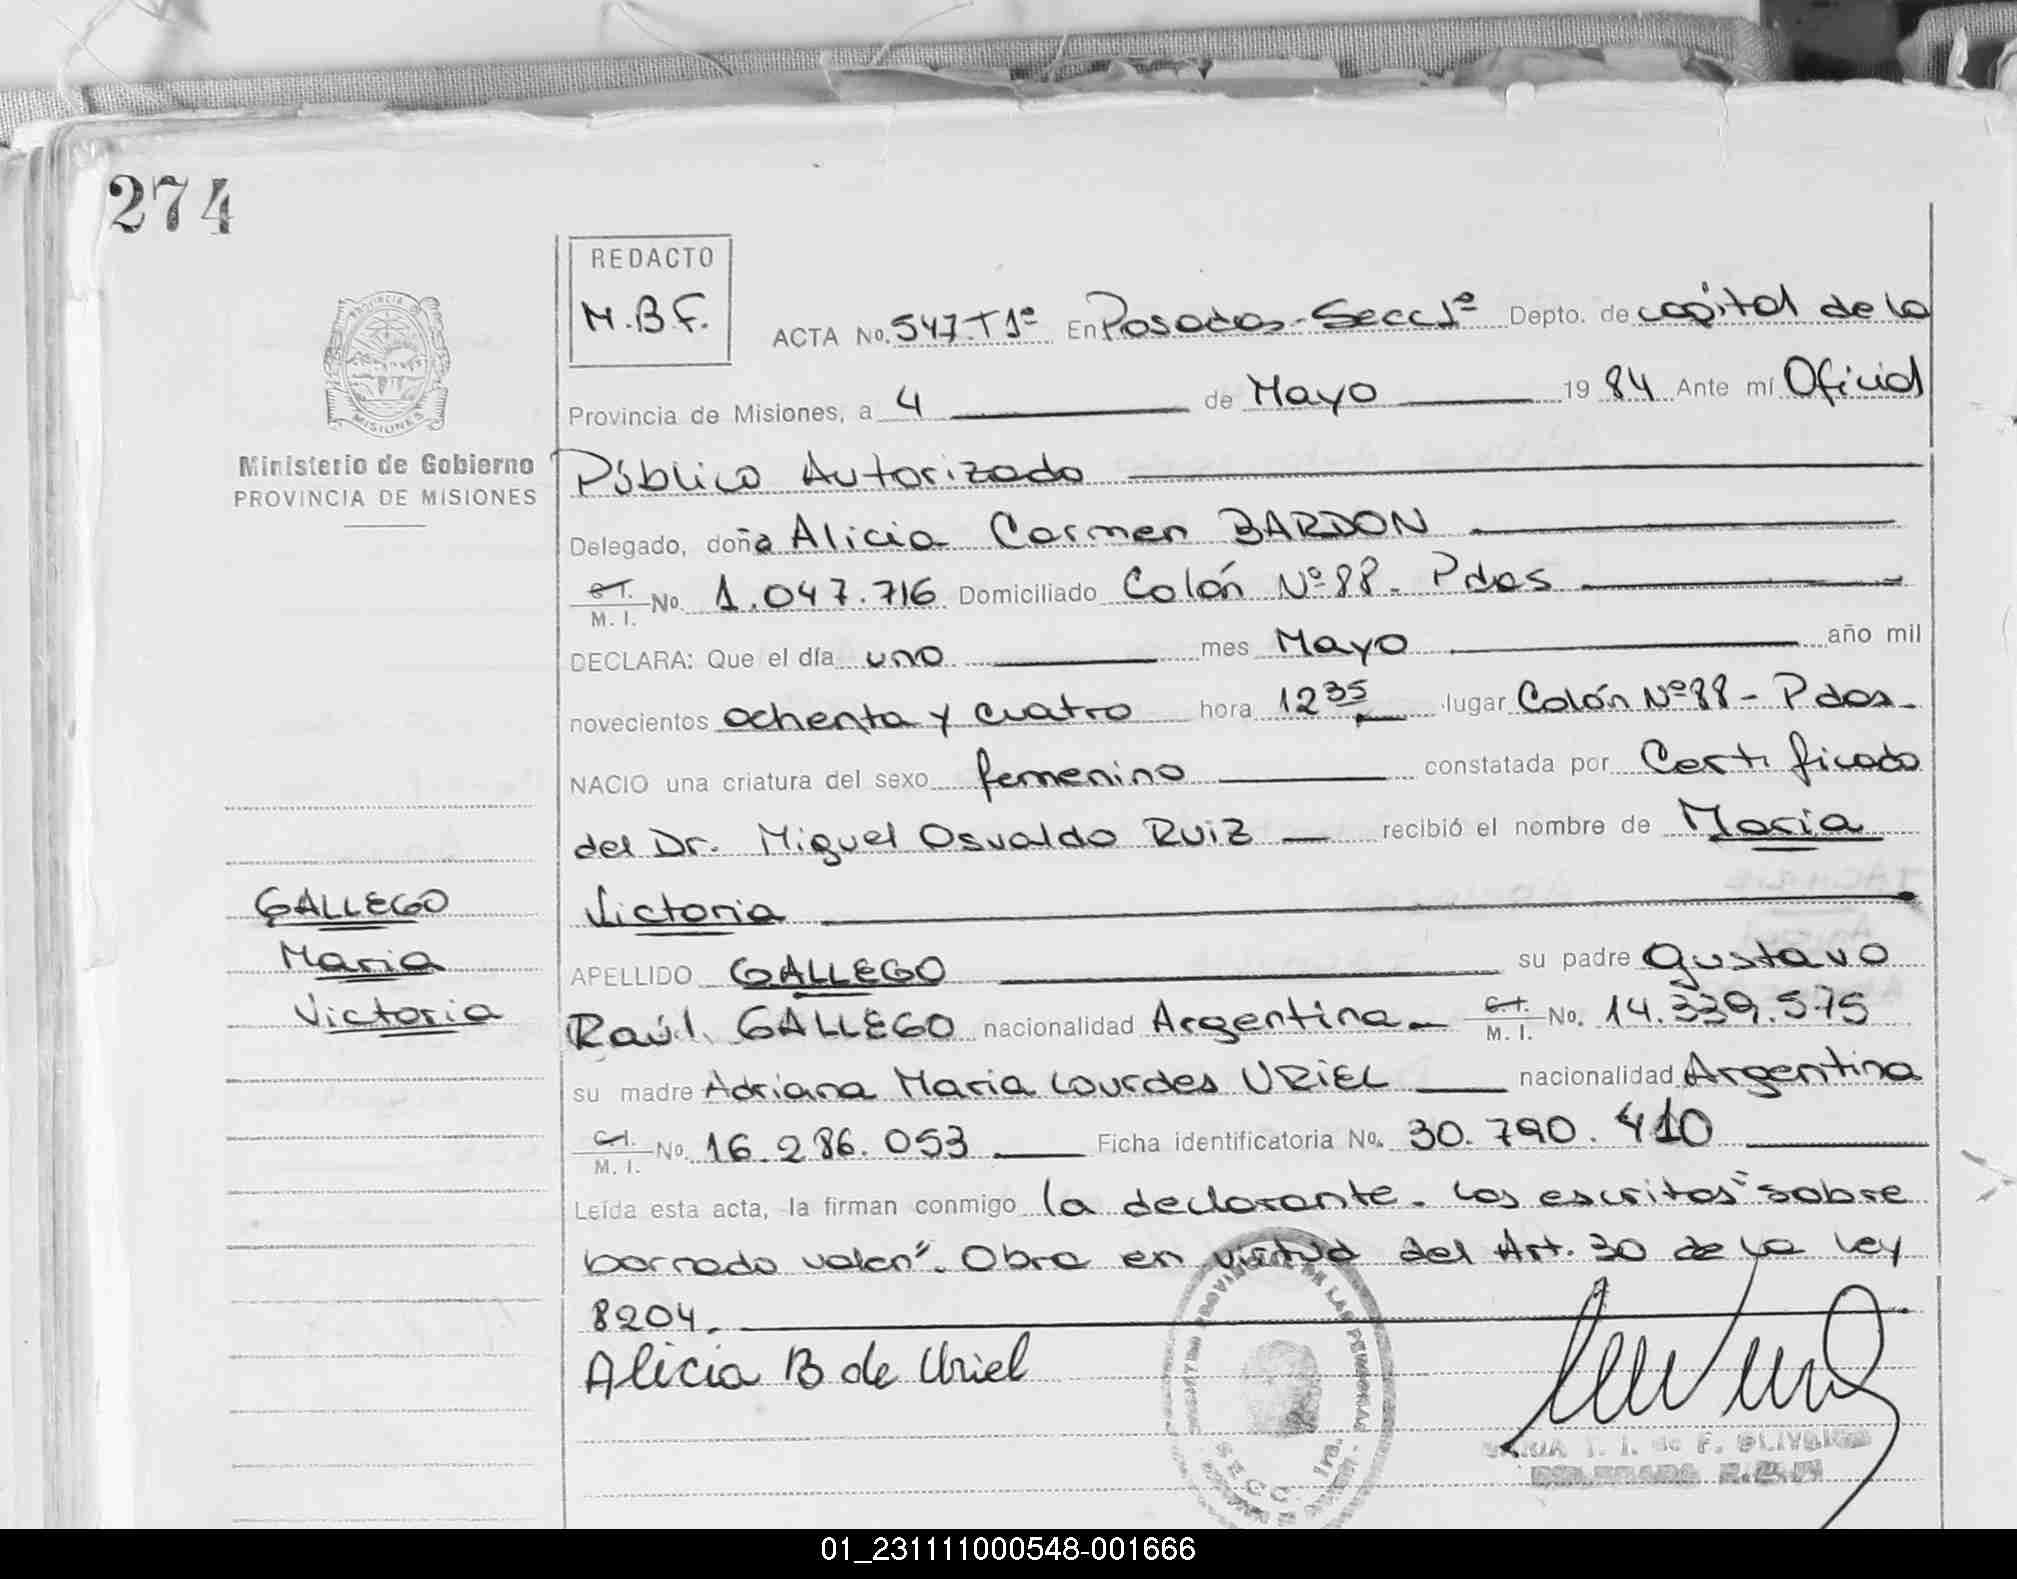 274
REDACTO
M.B.F.
ACTA No. 547.T1º En Posadas-Secc 1º Depto. de capital de la
Provincia de Misiones, a 4 de Mayo 19 84 Ante mí Oficial
Ministerio de Gobierno
PROVINCIA DE MISIONES
Público Autorizado
Delegado, doña Alicia Carmen BARDON
C.I.
M. I. No. 1.047.716 Domiciliado Colón Nº 88 - Pdas
DECLARA: Que el día uno mes Mayo año mil
novecientos ochenta y cuatro hora 12 35 lugar Colón Nº 88 - Pdas.
NACIO una criatura del sexo femenino constatada por Certificado
del Dr. Miguel Osvaldo RUIZ recibió el nombre de Maria
Victoria
GALLEGO
Maria
Victoria
APELLIDO GALLEGO su padre Gustavo
Raúl GALLEGO nacionalidad Argentina C.I.
M. I. No. 14.339.575
su madre Adriana Maria Lourdes URIEL nacionalidad Argentina
C.I.
M. I. No. 16.286.053 Ficha identificatoria No. 30.790.410
Leída esta acta, la firman conmigo la declarante. Los escritos "sobre
borrado valen". Obra en virtud del Art. 30 de la Ley
8204.
Alicia B de Uriel
SECC. 1ra.
01_231111000548-001666